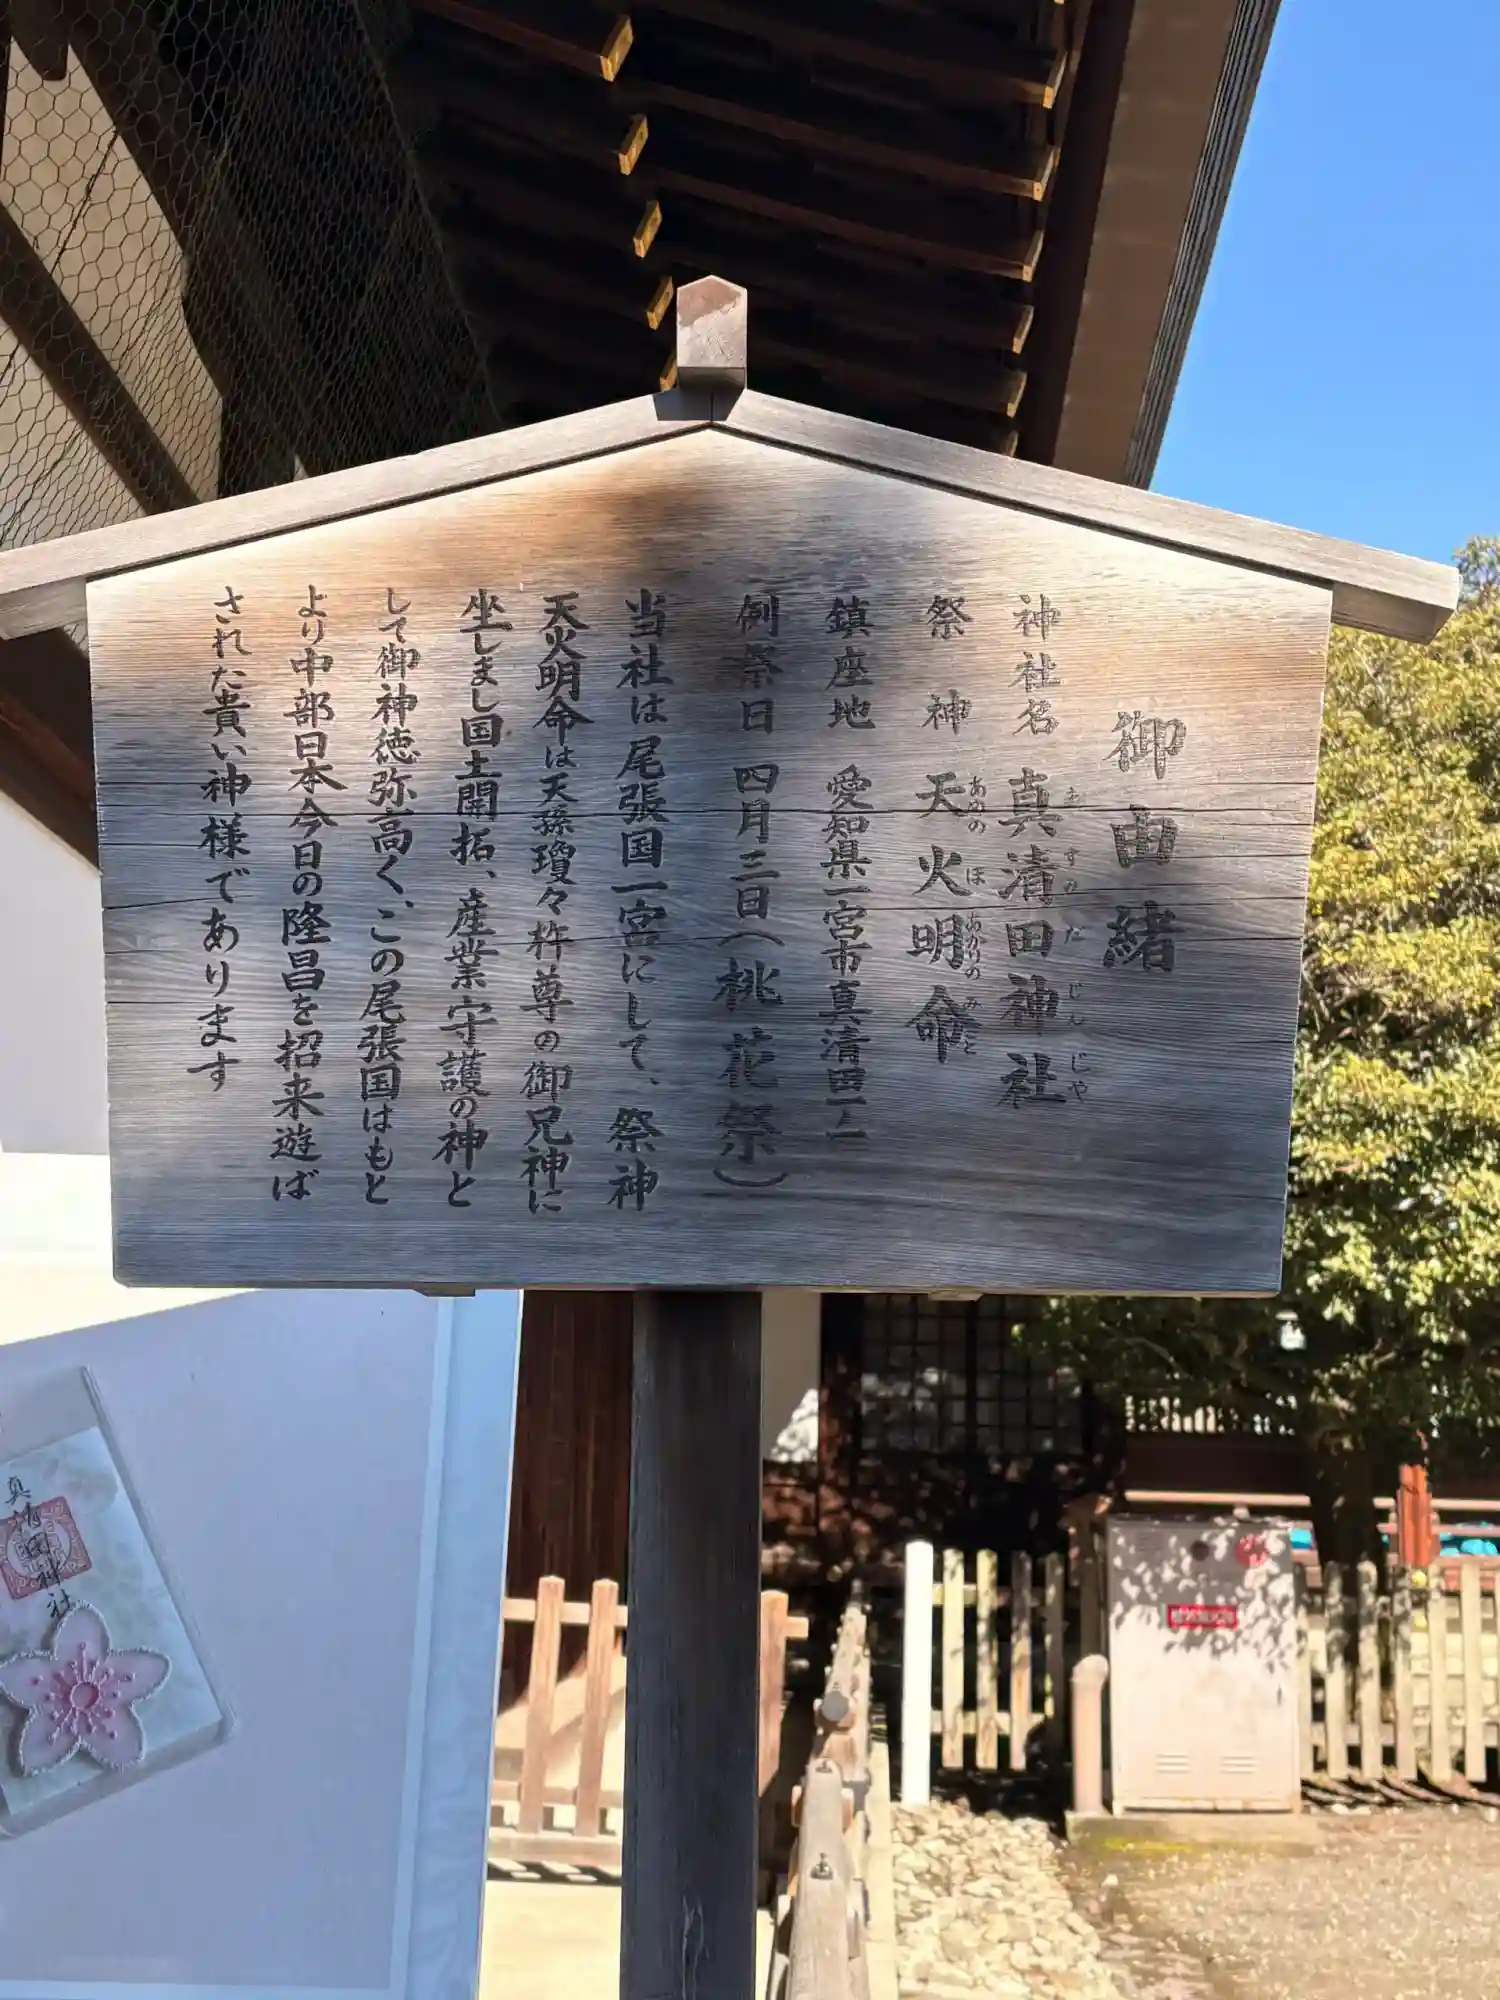 御由緒
神社名 真清田神社
ますみだじんじゃ
祭神 天火明命
あめのほあかりのみこと
鎮座地 愛知県一宮市真清田一ノ一
例祭日 四月三日(桃花祭)
当社は尾張国一宮にして、祭神
天火明命は天孫瓊々杵尊の御兄神に
坐しまし国土開拓、産業守護の神と
して御神徳弥高く、この尾張国はもと
より中部日本今日の隆昌を招来遊ば
された貴い神様であります
真清田神社